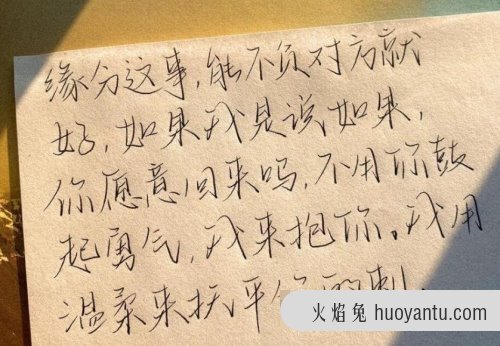 缘分这事,能不负对方就
好,如果我是说如果,
你愿意回来吗,不用你鼓
起勇气,我来抱你。我用
温柔来抚平你的刺
火焰兔 huoyantu.com